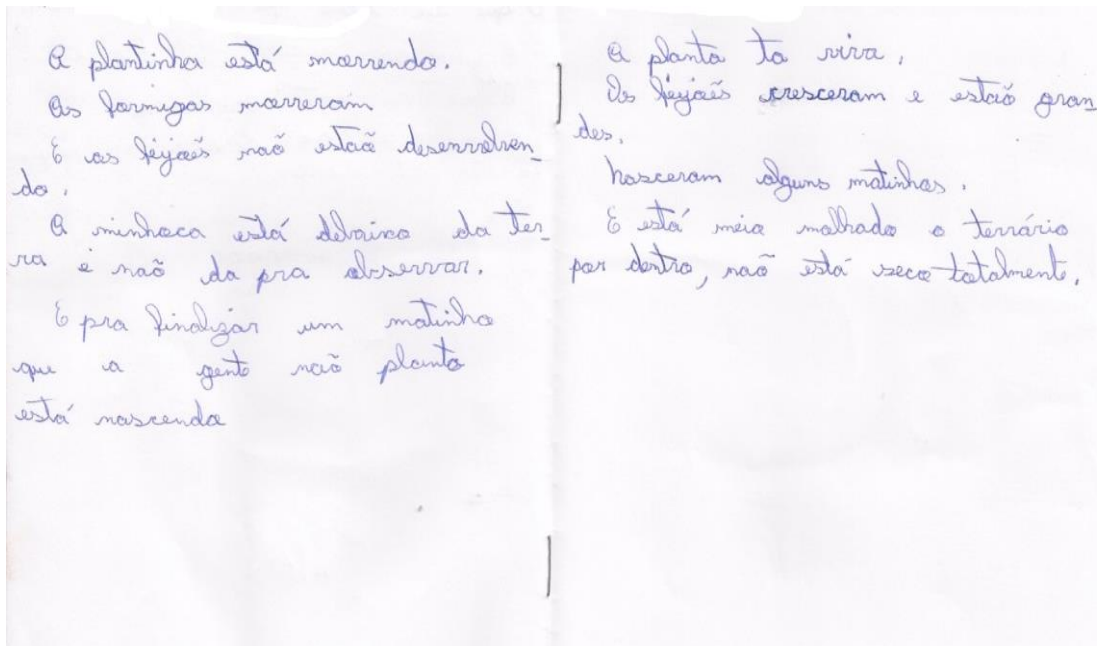 A plantinha está morrendo.
As formigas morreram
E os feijões não estão desenvolven_
do.
A minhoca está debaixo da ter_
ra e não da pra observar.
E pra finalizar um matinho
que a gente não planto
está nascendo
A planta ta viva.
Os feijões cresceram e estão gran_
des.
Nasceram alguns matinhos.
E está meio molhado o terrário
por dentro, não está seco totalmente.